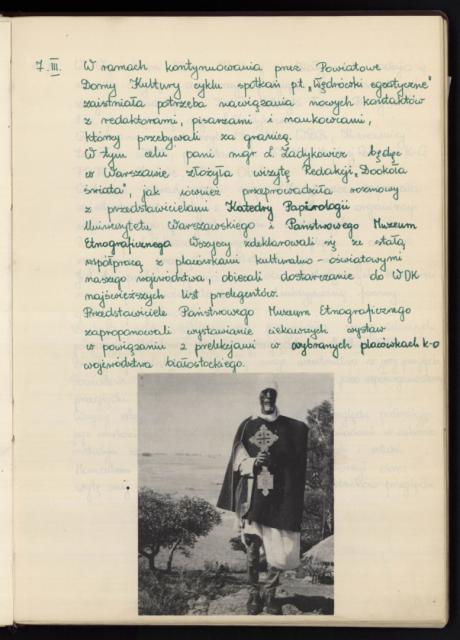 7.III. W ramach kontynuowania przez Powiatowe
Domy Kultury cyklu spotkań pt. „Wędrówki egzotyczne"
zaistniała potrzeba nawiązania nowych kontaktów
z redaktorami, pisarzami i naukowcami,
którzy przebywali za granicą.
W tym celu pani mgr L. Zadykowicz będąc
w Warszawie złożyła wizytę Redakcji „Dookoła
świata", jak również przeprowadziła rozmowy
z przedstawicielami Katedry Papirologii
Uniwersytetu Warszawskiego i Państwowego Muzeum
Etnograficznego Wszyscy zdeklarowali się ze stałą
współpracą z placówkami kulturalno-oświatowymi
naszego województwa, obiecali dostarczanie do WDK
najświeższych list prelegentów.
Przedstawiciele Państwowego Muzeum Etnograficznego
zaproponowali wystawianie ciekawszych wystaw
w powiązaniu z prelekcjami w wybranych placówkach k-o
województwa białostockiego.